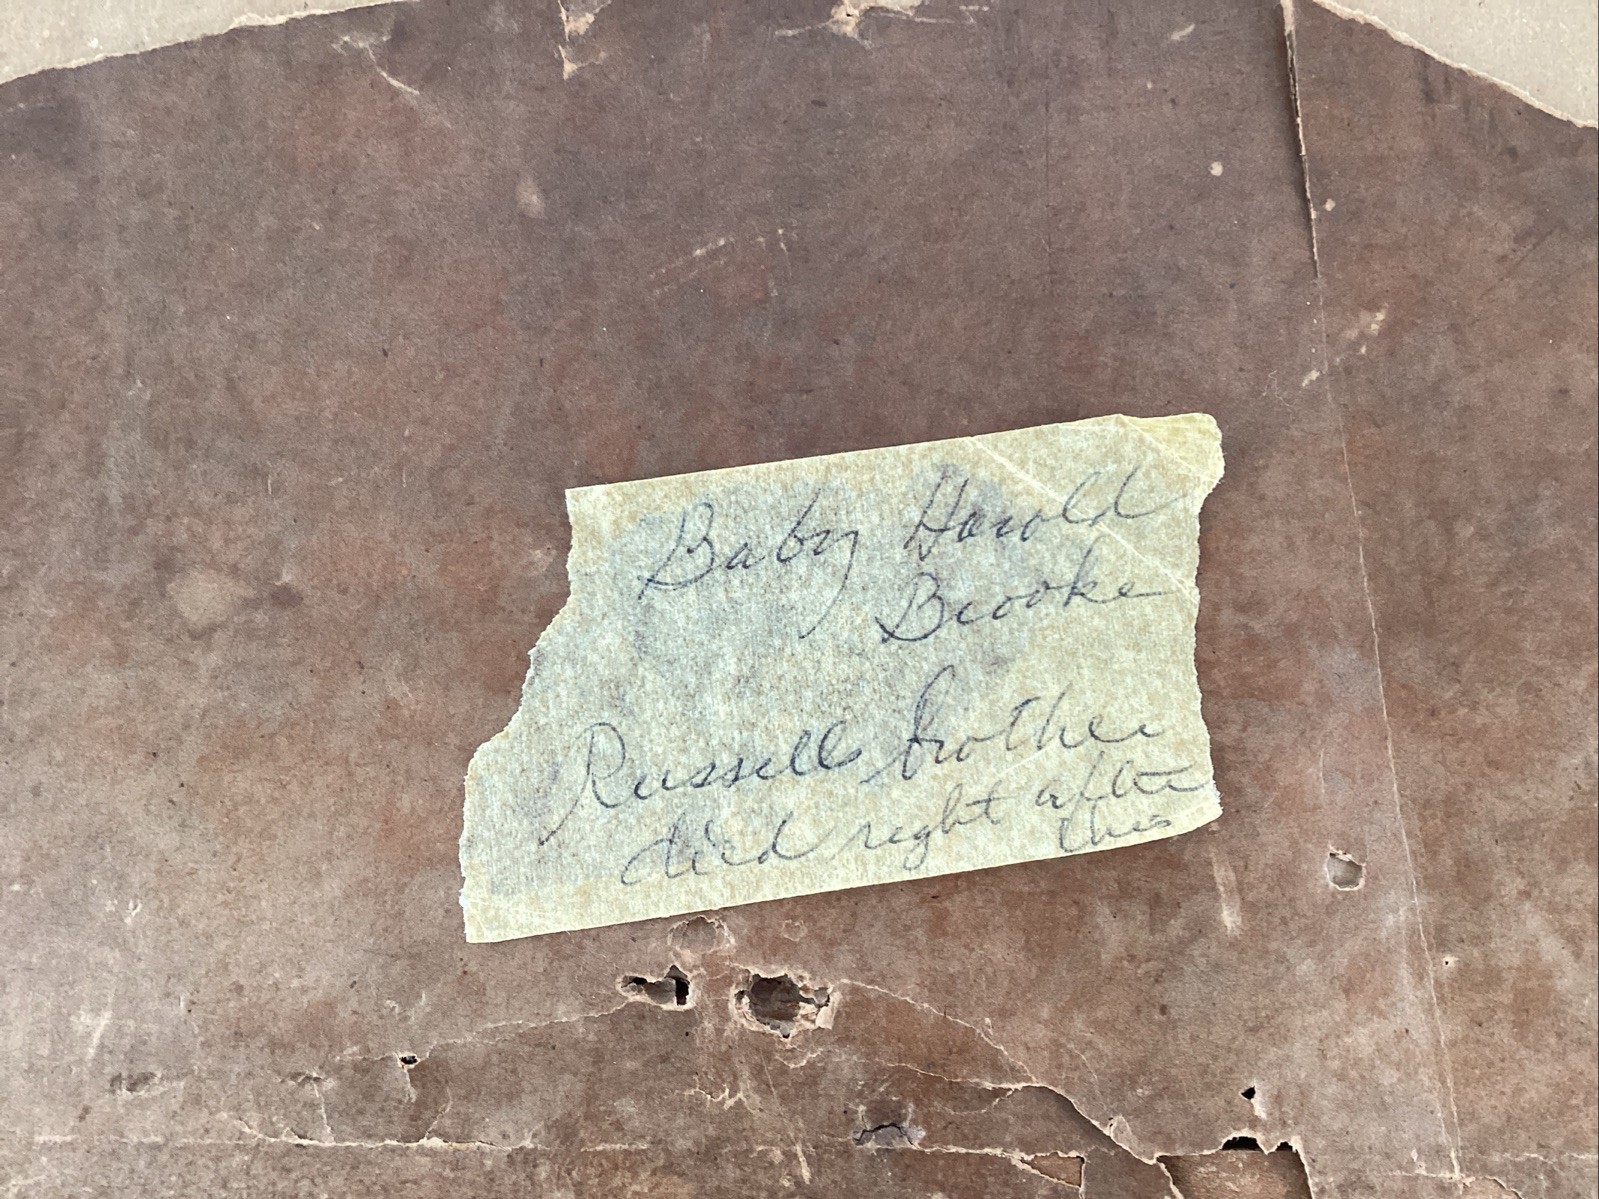 Baby Harold
Brooke
Russell brother
died right after
this